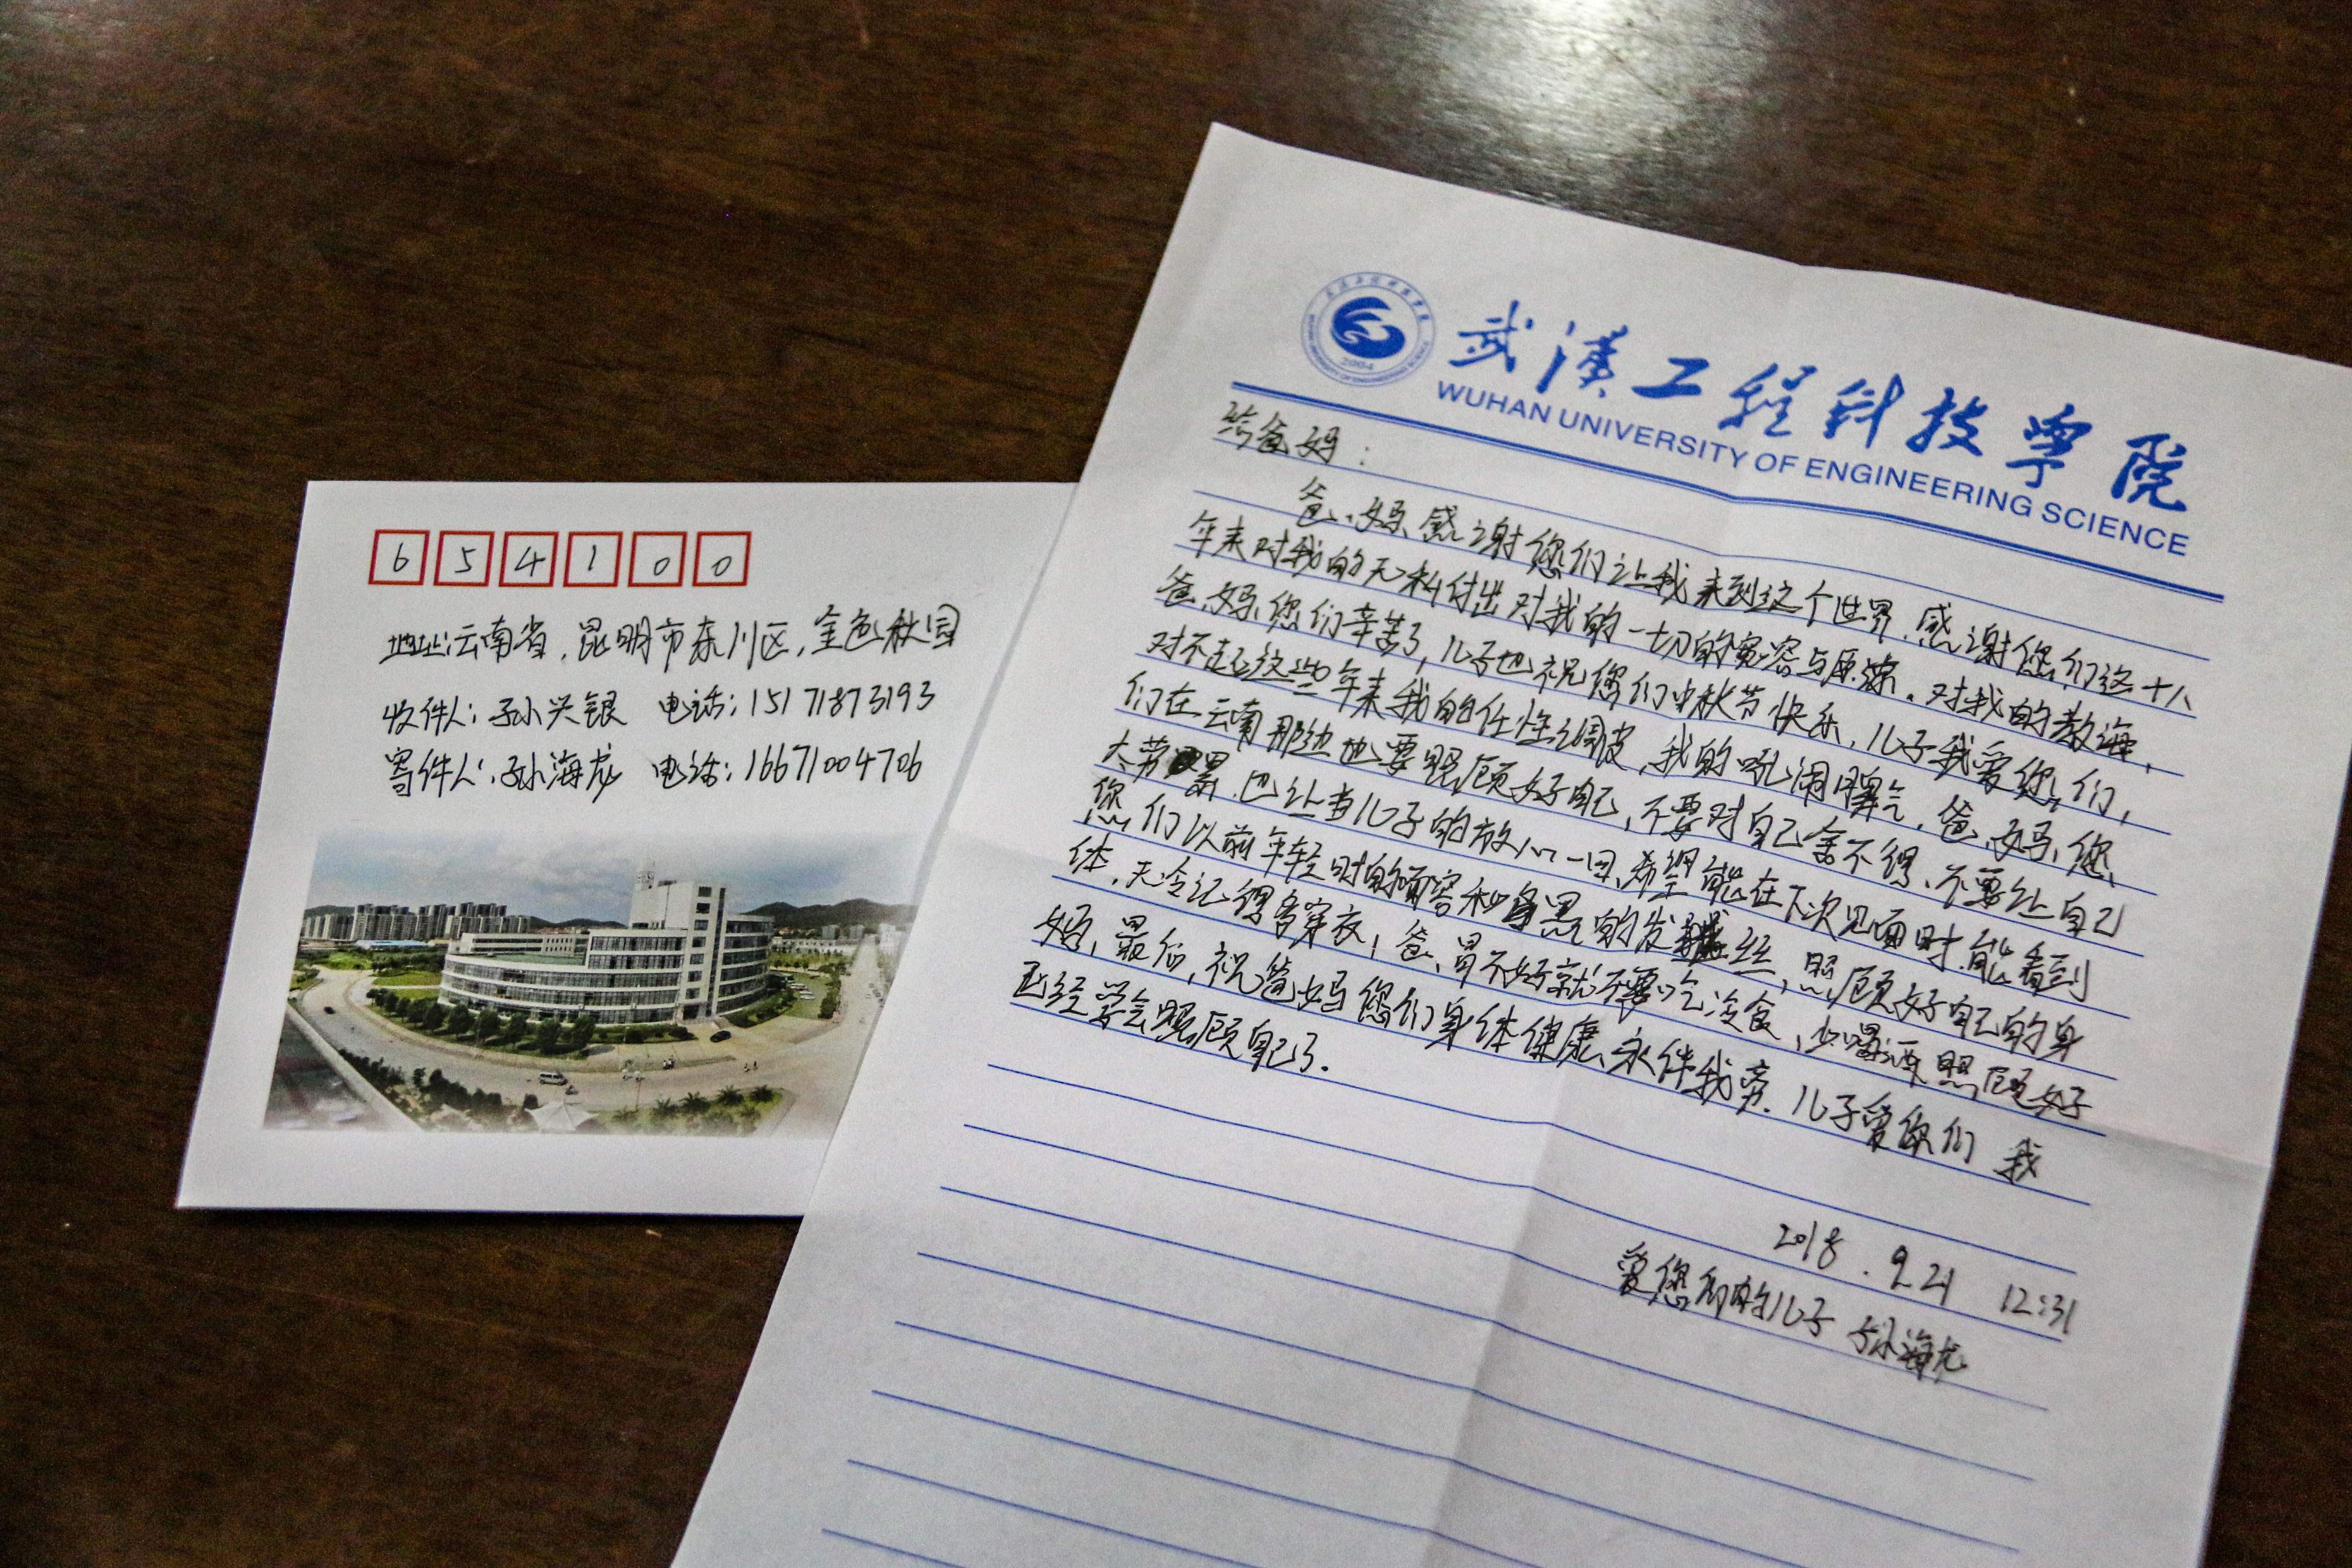 654100
地址:云南省,昆明市东川区,金色秋园
收件人:孙兴银 电话:15171873193
寄件人:孙海龙 电话:16671004706
武汉工程科技学院
WUHAN UNIVERSITY OF ENGINEERING SCIENCE
2004
给爸妈:
爸、妈、感谢您们让我来到这个世界,感谢您们这十八
年来对我的无私付出对我的一切的宽容与原谅。对我的教诲,
爸、妈、您们辛苦了,儿子也祝您们中秋节快乐,儿子我爱您们,
对不起这些年来我的任性调皮,我的吵闹脾气,爸、妈、您
们在云南那边也要照顾好自己,不要对自己舍不得、不要让自己
太劳累,也让当儿子的放心一回、希望能在下次见面时,能看到
您们以前年轻时的容和黑的发丝,照顾好自己的身
体,天冷记得多穿衣,爸,胃不好就不要吃冷食,少喝酒照顾好
妈、最后,祝爸妈您们身体健康、永伴我旁.儿子爱你们 我
已经学会照顾自己了.
2018.9.21 12:31
爱您们的儿子 孙海龙